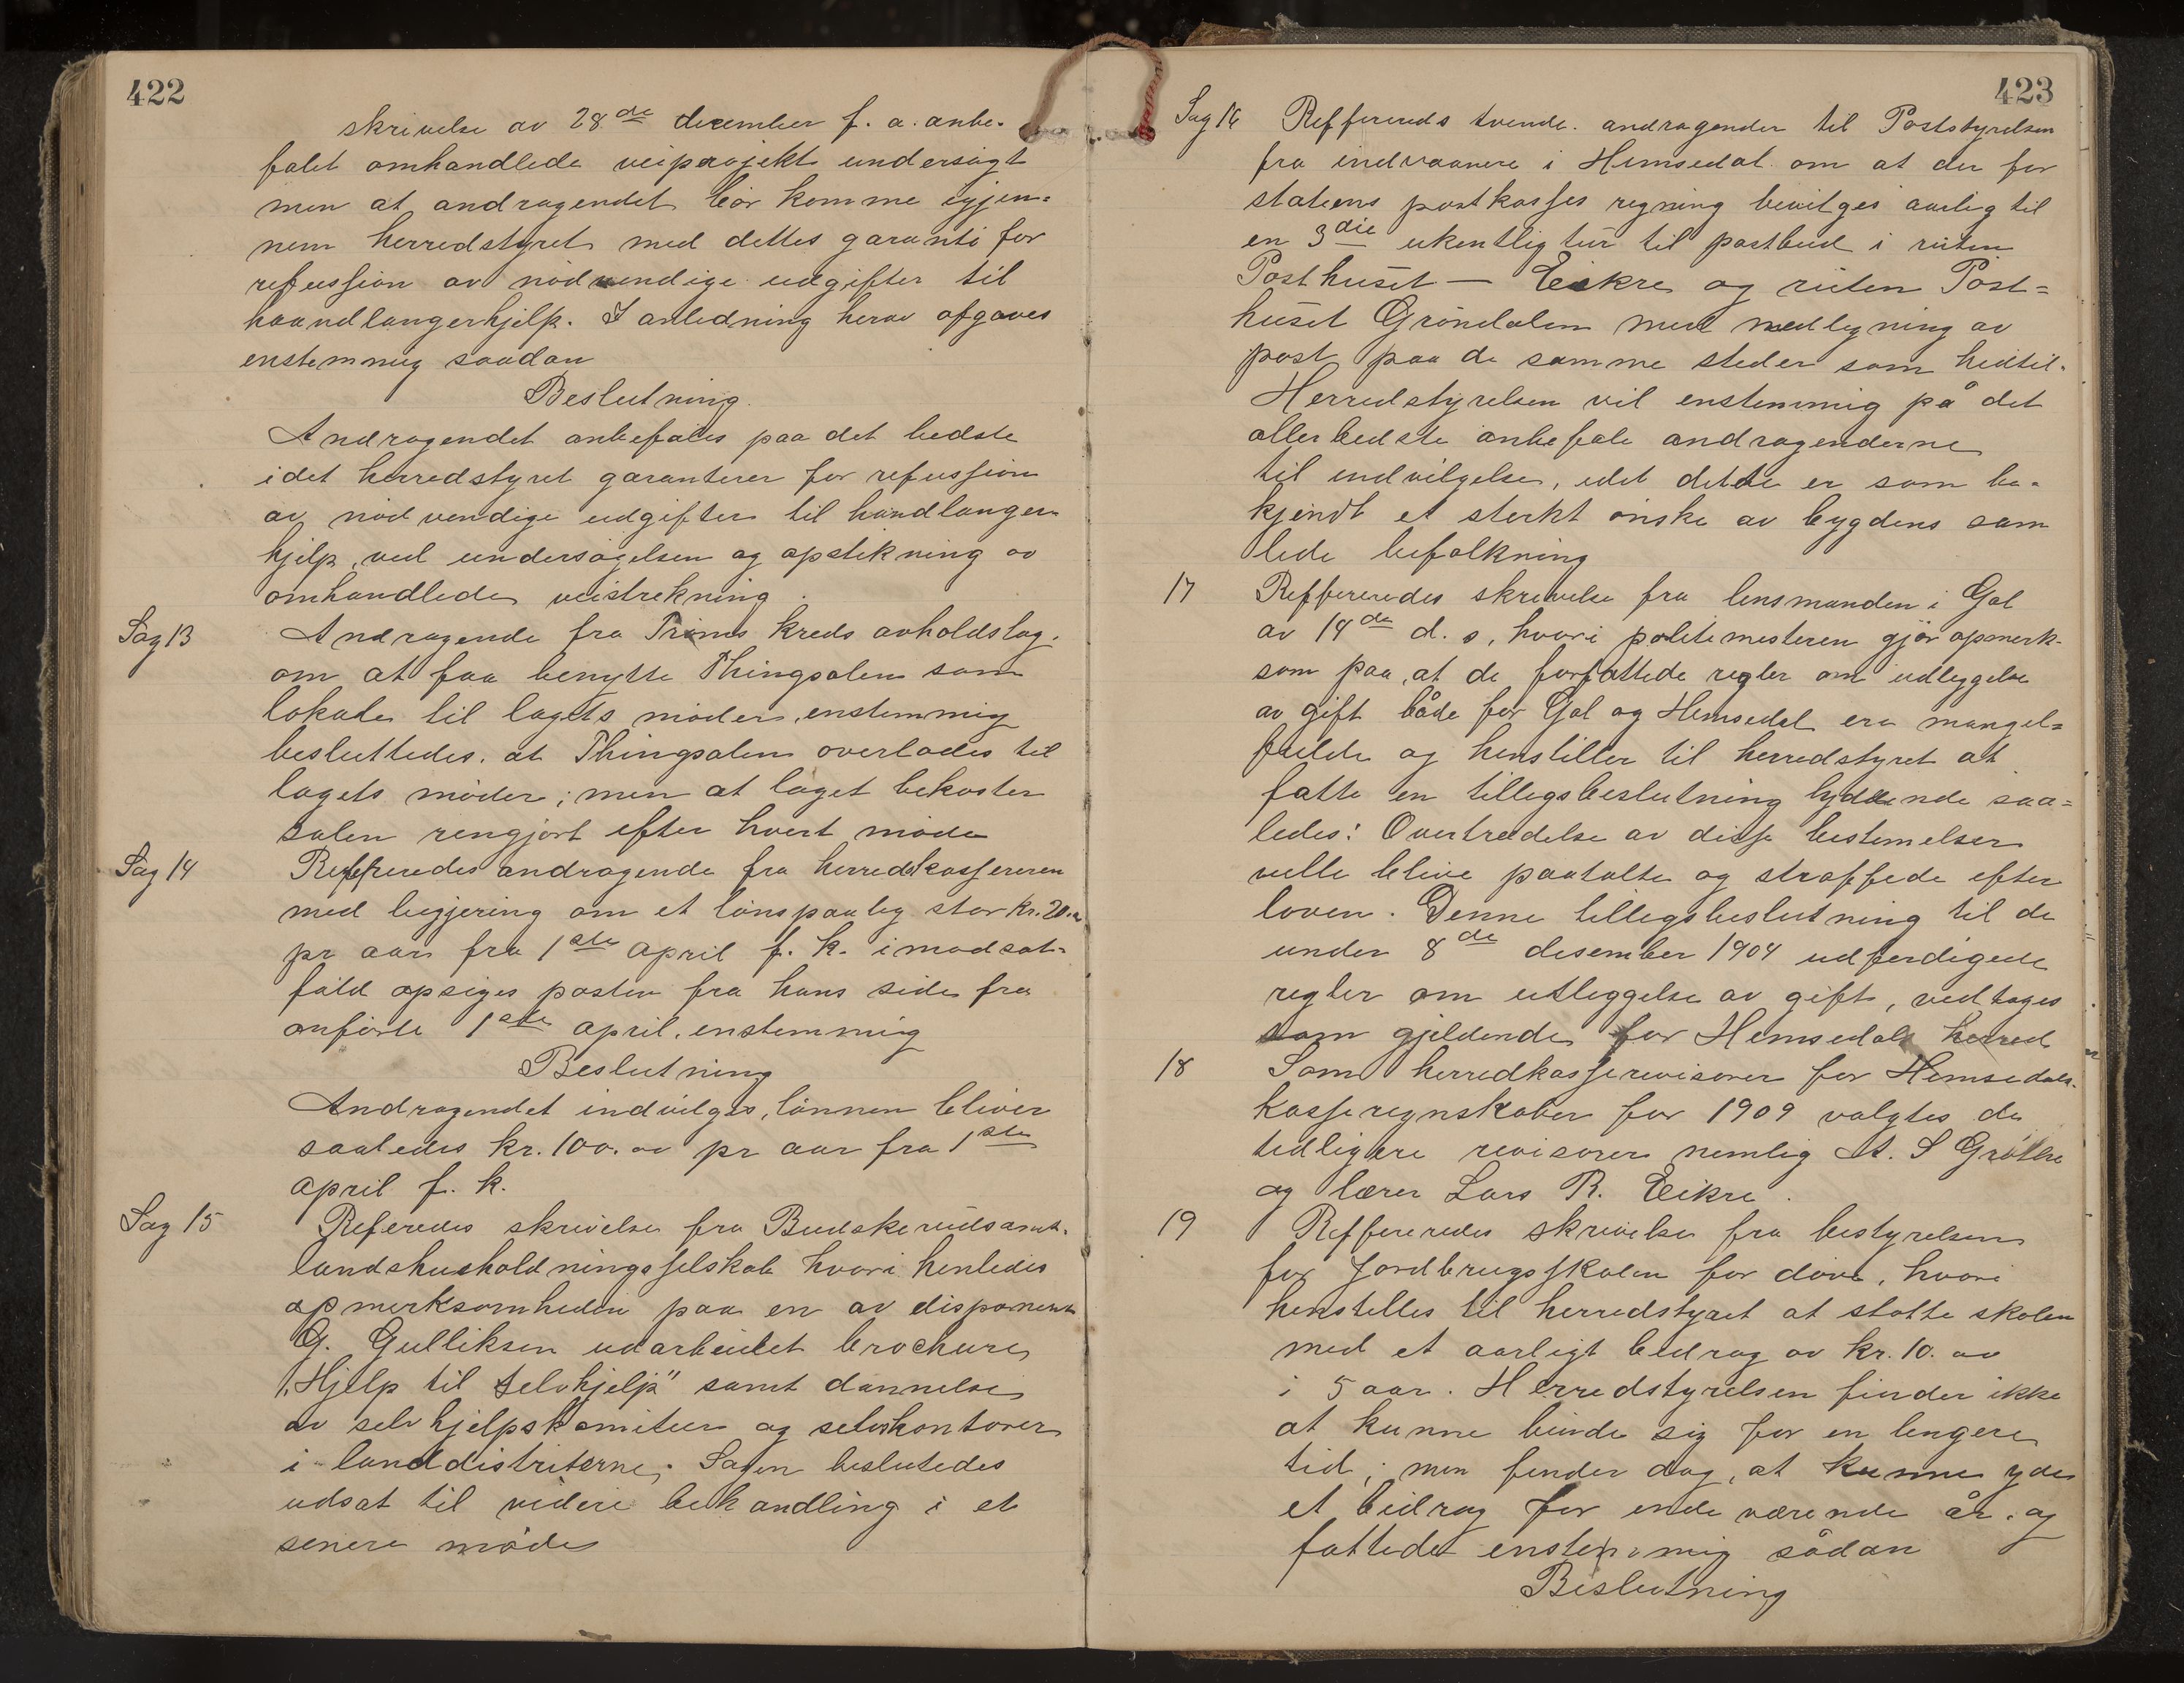 422
skrivelse av 28de december f. a. anbe-
falet omhandlede veiprojekt undersøgt
men at andragendet bør komme igjen-
nem herredstyret med dettes garanti for
refussion av nødvendige udgifter til
haandlangerhjelp. I anledning herav afgaves
enstemmig saadan
Beslutning.
Andragendet anbefales paa det bedste
idet herredstyret garanterer for refussion
av nødvendige udgifter til handlanger-
hjelp, ved undersøgelsen og opstikning av
omhandlede veistrekning.
Sag 13 Andragende fra Trims kreds avholdslag.
om at faa benytte Thingsalen som
lokale til lagets møder, enstemmig
besluttedes. at Thingsalen overlades til
lagets møder; men at laget bekoster
salen rengjort efter hvert møde
Sag 14 Reffreredes andragende fra herredskassereren
med begjering om et lønspaaleg stor kr. 20.oo
pr aar fra 1ste april f. k. i modsat-
fald opsiges posten fra hans side fra
anførte 1ste april. enstemmig
Beslutning
Andragendet indvilges, lønnen bliver
saaledes kr. 100. oo pr aar fra 1ste
april f. k.
Sag 15 Referedes skrivelse fra Buskeruds amt.
landshusholdningsselskab hvori henledes
opmerksomheden paa en av disponent
G. Gulliksen udarbeidet brochure
"Hjelp til selvhjelp" samt dannelse
av selvhjelpskomiteer og selvskontorer
i landdistriterne; Sagen beslutedes
udsat til videre behandling i et
senere møde
423
Sag 16 Reffereds tvende. andragender til Poststyrelsen
fra indvaanere i Hemsedal om at der for
statens postkasses regning bevilges aarlig til
en 3die ukentlig tur til postbud i ruten
Posthuset — Eikre og ruten Post=
huset Grøndalen med medlegning av
post paa de samme steder som hidtil.
Herredstyrelsen vil enstemmig på det
allerbedste anbefale andragenderne
til indvilgelse, idet dette er som be-
kjendt et sterkt ønske av bygdens sam
lede befolkning
17 Reffereredes skrivelse fra lensmanden i Gol
av 14de d. s, hvori politimesteren gjør opmerk-
som paa, at de forfattede regler om udleggelse
av gift både for Gol og Hemsedal era mangel=
fulde og henstiller til herredstyret at
fatte en tillegsbeslutning lydende saa=
ledes: Overtredelse av disse bestemelser
ville blive paatalte og straffede efter
loven. Denne tillegsbeslutning til de
under 8de desember 1904 udferdigede
regler om utleggelse av gift, vedtages
som gjeldende for Hemsedals herred
18 Som herredkasserevisorer for Hemsedals.
kasseregnskaber for 1909 valgtes de
tidligere revisorer nemlig A. S Grøthe
og lærer Lars R. Eikre.
19 Reffereredes skrivelse fra bestyrelsen
for Jordbrugsskolen for døve, hvori
henstilles til herredstyret at støtte skolen
med et aarligt bedrag av kr. 10. oo
i 5 aar. Herredstyrelsen finder ikke
at kunne binde sig for en lengere
tid; men finder dog, at kunne yde
et bidrag for inde værende år. og
fattedet enstemmig sådan
Beslutning